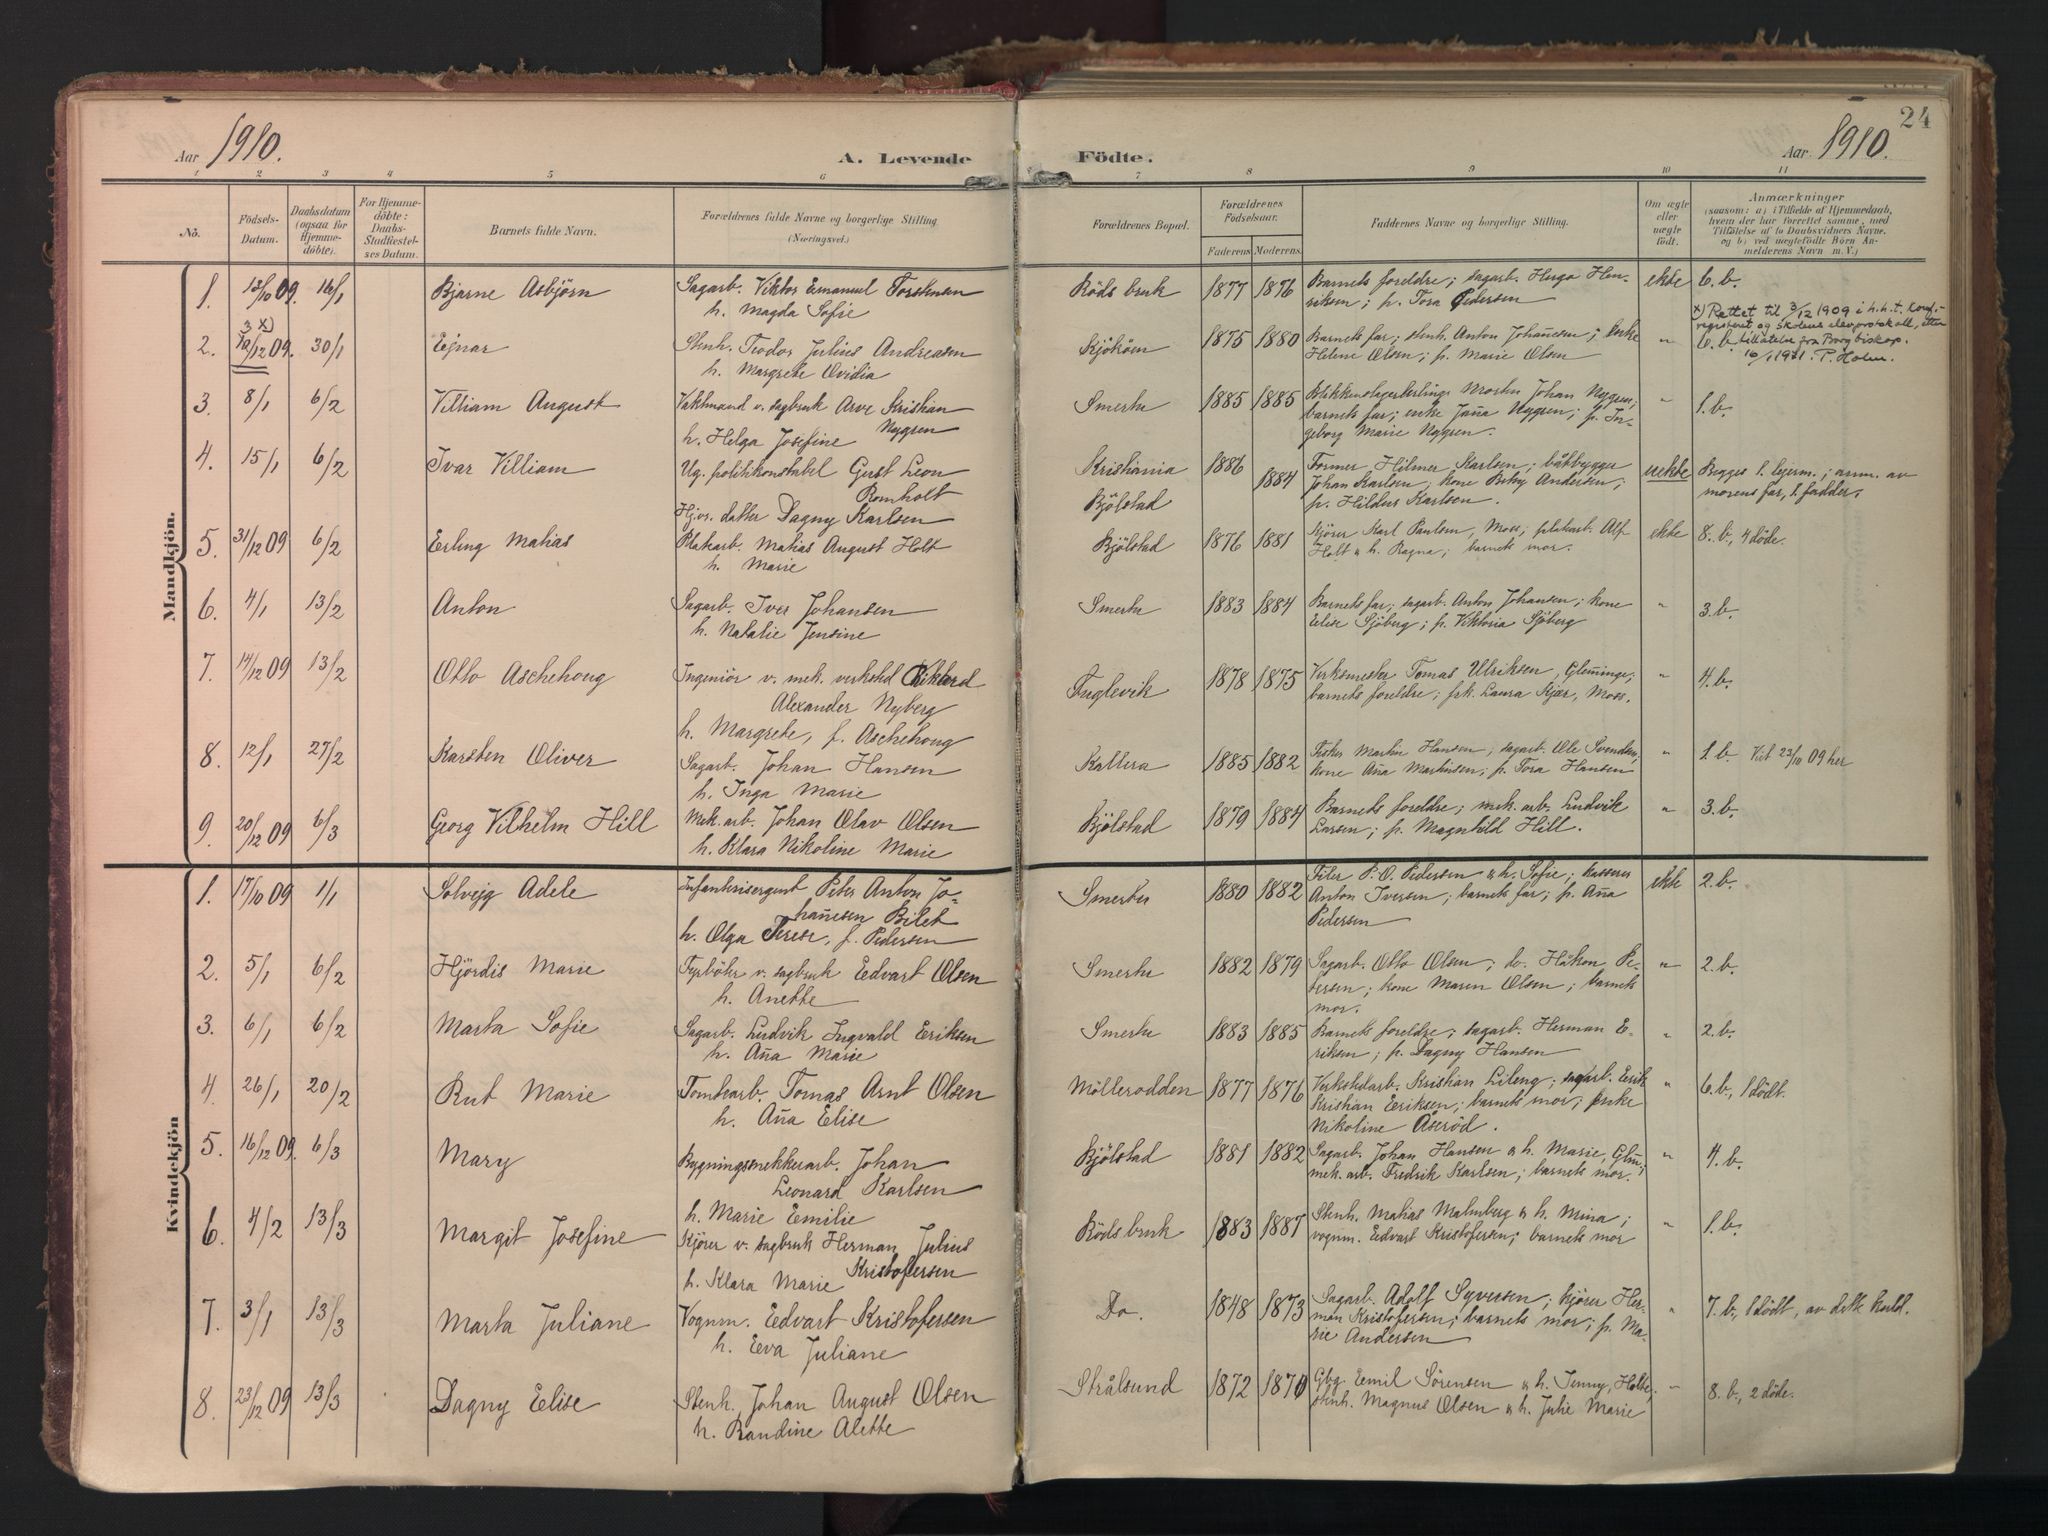 24
Aar 1910.
A. Levende Födte.
Aar 1910.
1 2 3 4 5 6 7 8 9 10 11
No.
Födsels-
Datum.
Daabsdatum
(ogsaa for
Hjemme-
döbte).
For Hjemme-
döbte:
Daabs-
Stadfæstel-
ses Datum.
Barnets fulde Navn.
Forældrenes fulde Navne og borgerlige Stilling.
(Næringsvei.)
Forældrenes Bopæl.
Forældrenes
Födselsaar.
Faderens Moderens
Faddernes Navne og borgerlige Stilling.
Om ægte
eller
uægte
födt.
Anmærkninger
(saasom: a) i Tilfælde af Hjemmedaab,
hvem der har forrettet samme, med
Tilföielse af to Daabsvidners Navne.
og b) ved uægtefödte Börn An-
melderens Navn m. V.)
Mandkjön.
1. 13/10 09. 16/1 Bjarne Asbjörn Sagarb. Viktor Emanuel Torstensen Röds bruk 1877 1876 Barnets foreldre; sagarb. Hugo Hen- ekte 6. b.
h. Magda Sofie riksen; p. Tora Pedersen
x) Rettet til 3/12 1909 i h.h.t. konf.-
registeret og skolens elevprotokoll, etter
2. 3 x) /12 09. 30/1 Ejnar Stenh. Teodor Julius Andreasen Kjököen 1875 1880 Barnets far; stenh. Anton Johañesen; enke " 6. b. tillatelse fra Borg biskop.
h. Margrete Ovidia Helene Olsen; p. Marie Olsen
16/1 1971. P. Holm.
3. 8/1 6/2 Villiam August Vaktmand v. sagbruk Arve Kristian Smertu 1885 1885 Morten Johan Nygren; " 1. b.
Nygren barnets far; enke Jaña Nygren; p. In-
h. Helga Josefine geborg Marie Nygren.
4. 15/1 6/2 Ivar Villiam Ug. politikonstabel Gust Leon Kristiania 1886 Former Hilmer Karlsen; båtbygger uekte Begges 1. lejerm.; anm. av
Romholt Bjölstad 1884 Johan Karlsen; kone Betzy Andersen; morens far, 1. fadder.
Hjv. datter Dagny Karlsen p. Hildur Karlsen.
5. 31/12 09 6/2 Erling Matias Platearb. Matias August Holt Bjölstad 1876 1881 Kjörer Karl Paulsen, Moss; platearb. Alf ekte 8. b., 4 döde.
h. Marie Holt & h. Ragna; barnets mor.
6. 4/1 13/2 Anton Sagarb. Iver Johansen Smertu 1883 1884 Barnets far; sagarb. Anton Johansen; kone " 3. b.
h. Natalie Jensine Elise Sjöberg; p. Viktoria Sjöberg
7. 14/12 09 13/2 Otto Aschehoug Ingeniör v. mek. verksted Fuglevik 1878 1875 Verksmester Tomas Ulriksen, Gleminge; " 4. b.
Alexander Nyberg barnets foreldre; frk. Laura Kjær, Moss.
h. Margrete, f. Aschehoug
8. 12/1 27/2 Karsten Oliver Sagarb. Johan Hansen Kallera 1885 1882 Fisker Martin Hansen; sagarb. Ole Svendsen; " 1. b. Viet 23/10 09 her
h. Inga Marie kone Aña Martinsen; p. Tora Hansen
9. 20/12 09 6/3 Georg Vilhelm Hill Mek. arb. Johan Olav Olsen Bjölstad 1879 1884 Barnets foreldre; mek. arb. Ludvik " 3. b.
h. Klara Nikoline Marie Larsen; p. Magnhild Hill.
Kvindekjön
1. 17/10 09 1/1 Solvejg Adele Infanterisergent Peter Anton Jo- Smertu 1880 1882 Filer P. O. Pedersen & h. Sofie; kasserer ekte 2. b.
hañesen Bilet Anton Iversen; barnets far; p. Aña
h. Olga Terese, f. Pedersen Pedersen
2. 5/1 6/2 Hjördis Marie Fyrböter v. sagbruk Edvart Olsen Smertu 1882 1879 Sagarb. Otto Olsen; do. Håkon Pe- " 2. b.
h. Anette tersen; kone Maren Olsen; barnets
mor.
3. 6/1 6/2 Marta Sofie Sagarb. Ludvik Ingvald Eriksen Smertu 1883 1885 Barnets foreldre; sagarb. Herman E- " 2. b.
h. Aña Marie riksen; p. Dagny Hansen
4. 26/1 20/2 Rut Marie Tomtearb. Tomas Arnt Olsen Möllerodden 1877 1876 Verkstedarb. Kristian Lileng; sagarb. Eerik " 6. b., 1 dödt.
h. Aña Elise Kristian Eeriksen; barnets mor; enke
Nikoline Åseröd.
5. 16/12 09. 6/3 Mary Bygningssnekkerarb. Johan Bjölstad 1881 1882 Sagarb. Johan Hansen & h. Marie, Glm; " 4. b.
Leonard Karlsen mek. arb. Fredrik Karlsen; barnets mor.
h. Marie Emilie
6. 4/2 13/3 Margit Josefine Kjörer v. sagbruk Herman Julius Röds bruk 1883 1887 Stenh. Matias Malmberg & h. Mina; " 1. b.
Kristofersen vognm. Edvart Kristofersen; barnets mor
h. Klara Marie
7. 3/1 13/3 Marta Juliane Vognm. Edvart Kristofersen Do. 1848 1873 Sagarb. Adolf Syversen; kjörer Her- " 7. b., 1 dödt, av dette kuld.
h. Eva Juliane man Kristofersen; barnets mor; p. Ma-
rie Andersen
8. 23/12 09 13/3 Dagny Elise Stenh. Johan August Olsen Strålsund 1872 1870 Gbg. Emil Sörensen & h. Jenny, Holte; " 8. b., 2 döde.
h. Randine Alette stenh. Magnus Olsen & h. Julie Marie